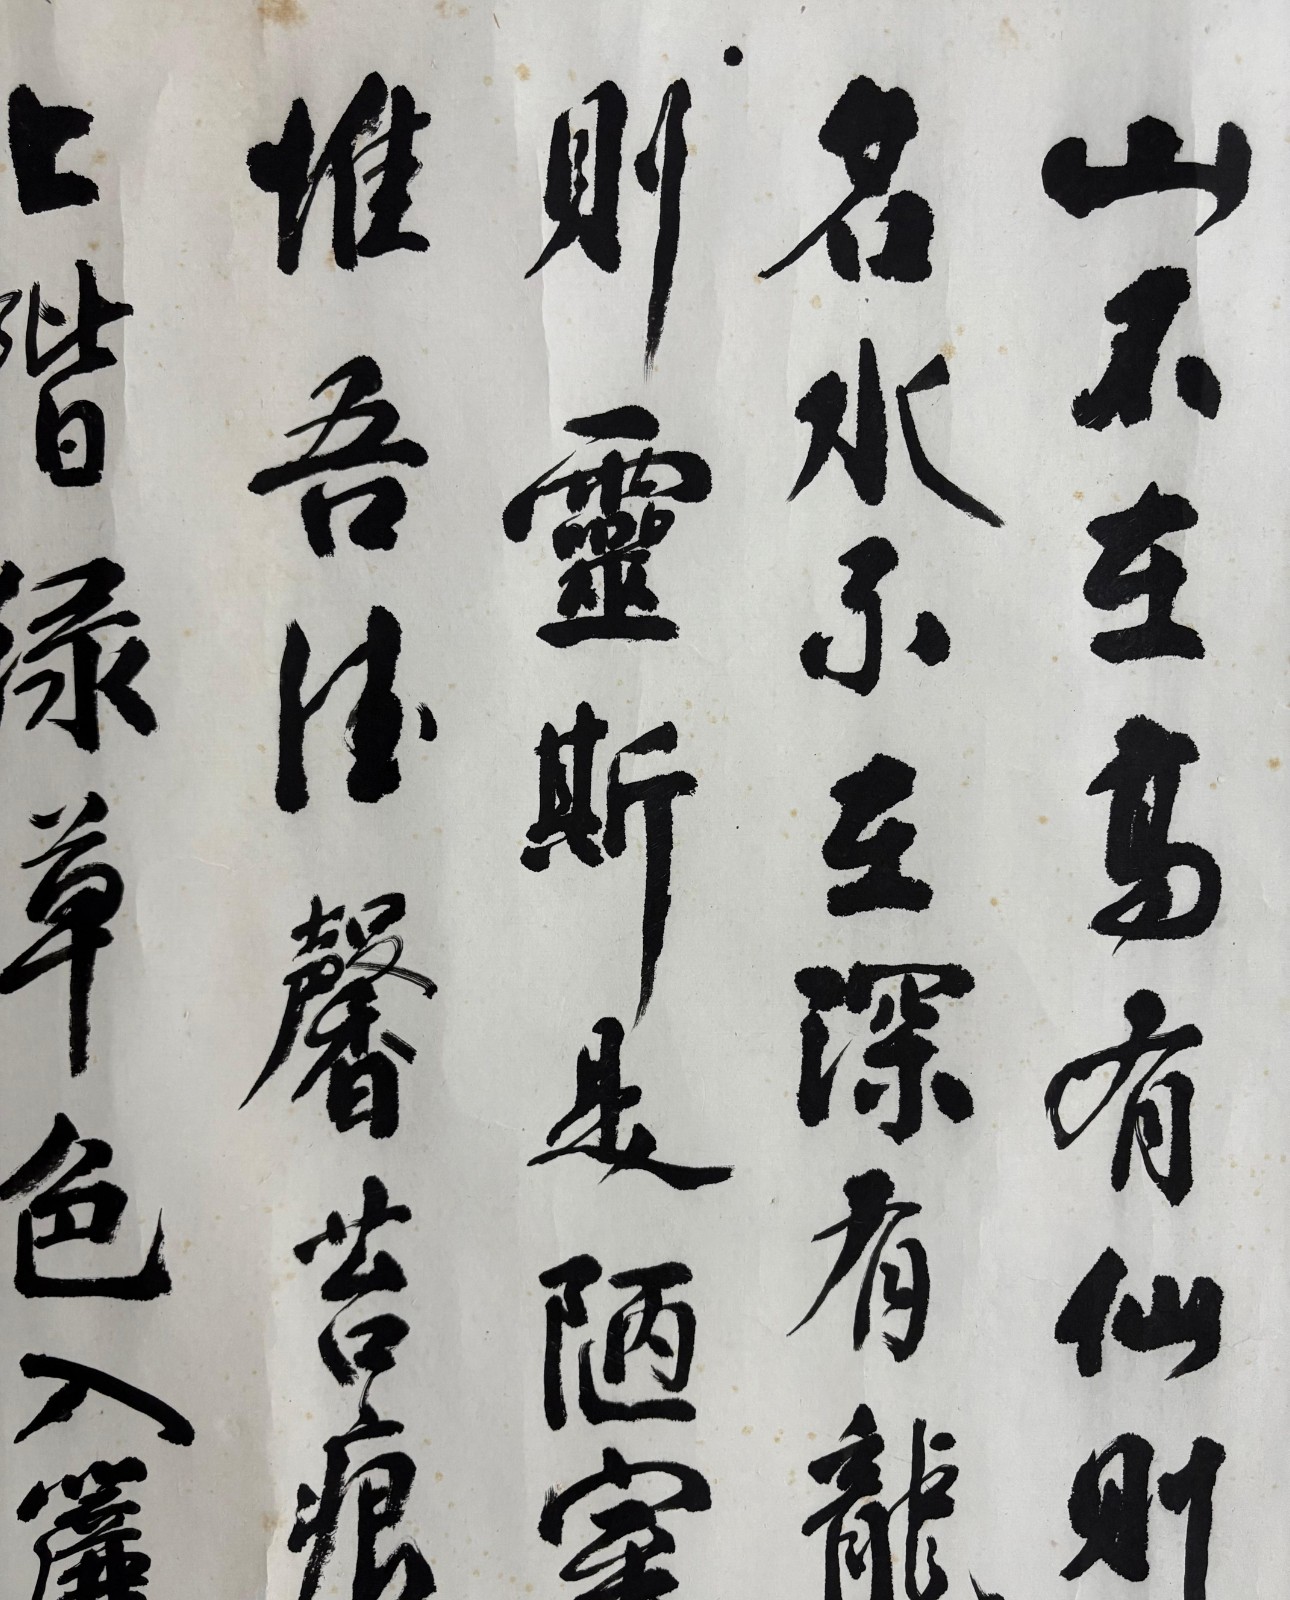 山不在高有仙則
名水不在深有龍
則靈斯是陋室
惟吾德馨苔痕
上階綠草色入簾